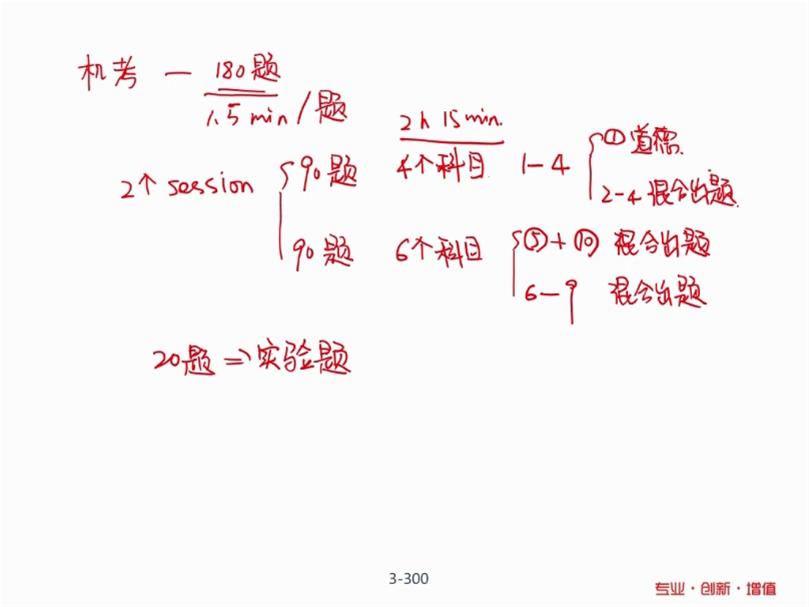 机考 — 180题
1.5 min / 题
2h 15min.
2个 session
90题 4个科目 1-4
① 道德
2-4 混合出题
90题 6个科目
⑤+⑩ 混合出题
6-9 混合出题
20题 => 实验题
3-300
专业·创新·增值